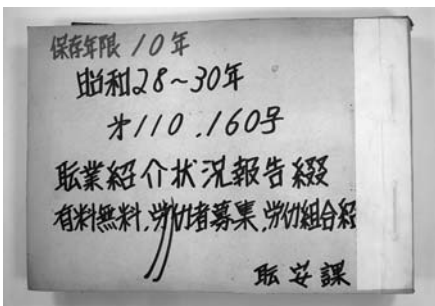 保存年限 10年
昭和28~30年
オ110.160号
耺業紹介状況報告綴
有料無料.労仂者募集.労仂組合紹
〃
耺安課